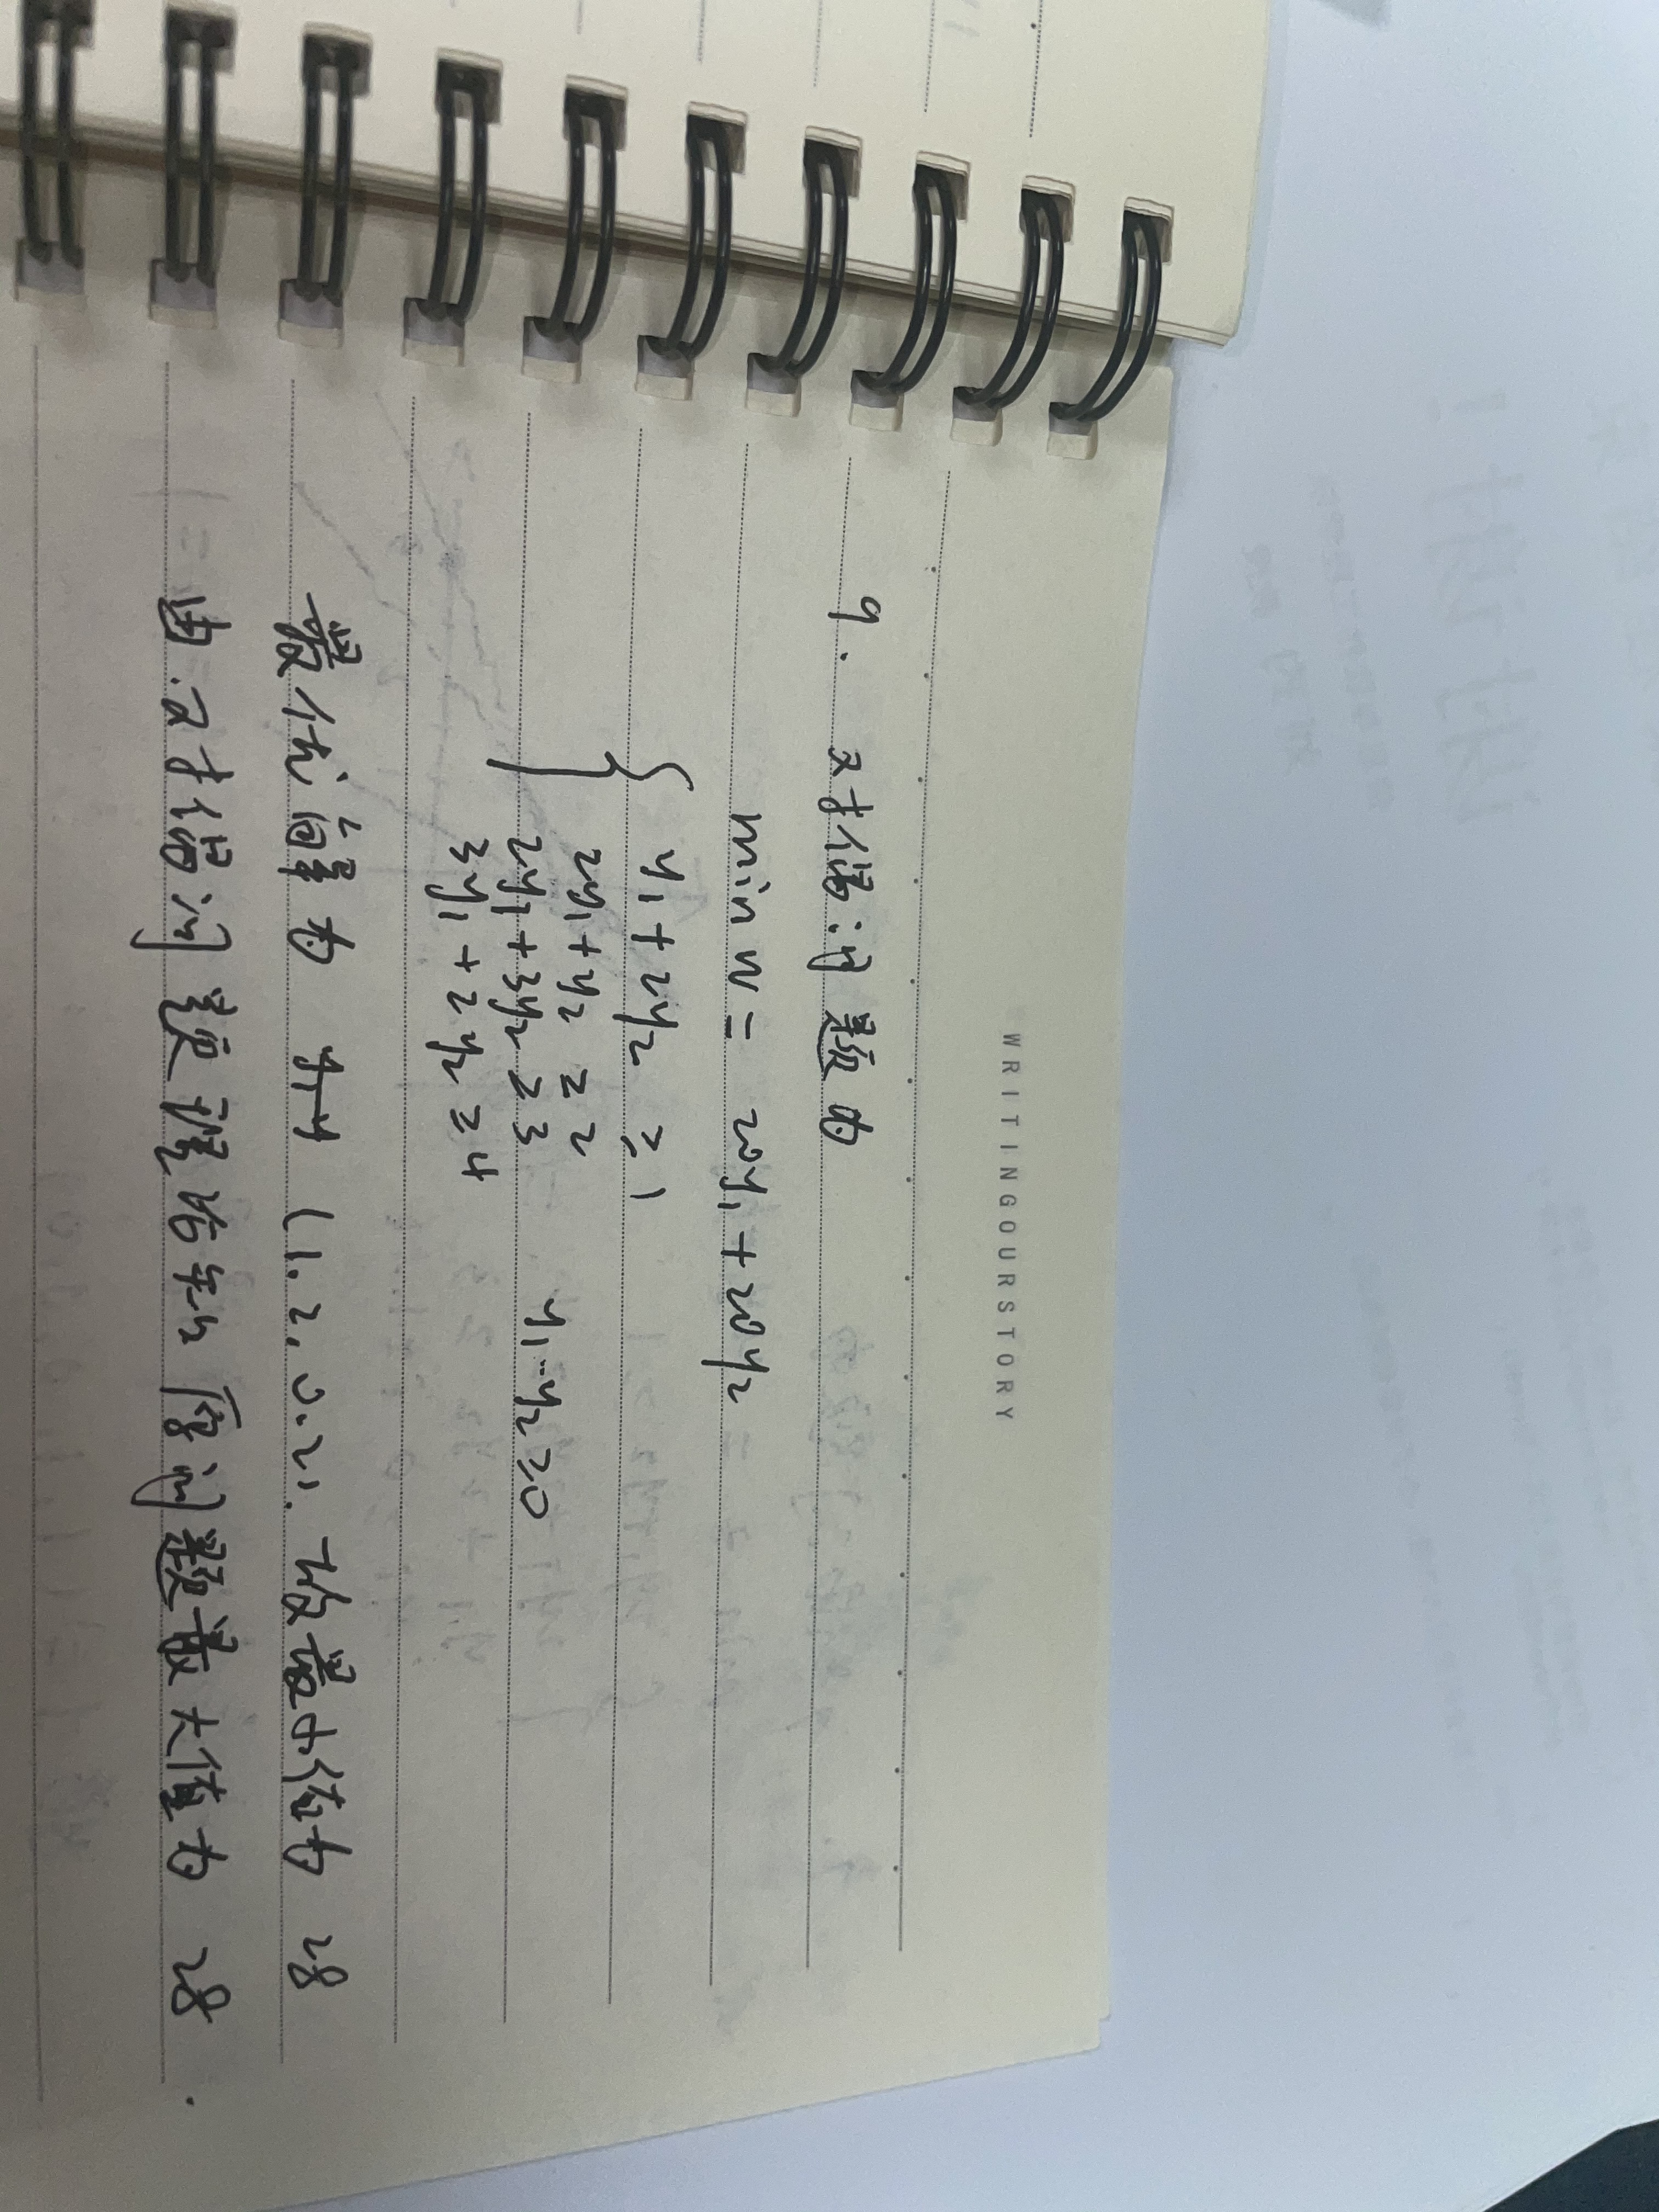 WRITINGOURSTORY
9. 对偶问题为
min w = 20y₁ + 20y₂
y₁ + 2y₂ ≥ 1
2y₁ + y₂ ≥ 2
2y₁ + 3y₂ ≥ 3
3y₁ + 2y₂ ≥ 4
y₁·y₂ ≥ 0
最优解为 (1.2, 0.2). 故最小值为 28
由对偶问题理论知 原问题最大值为 28.